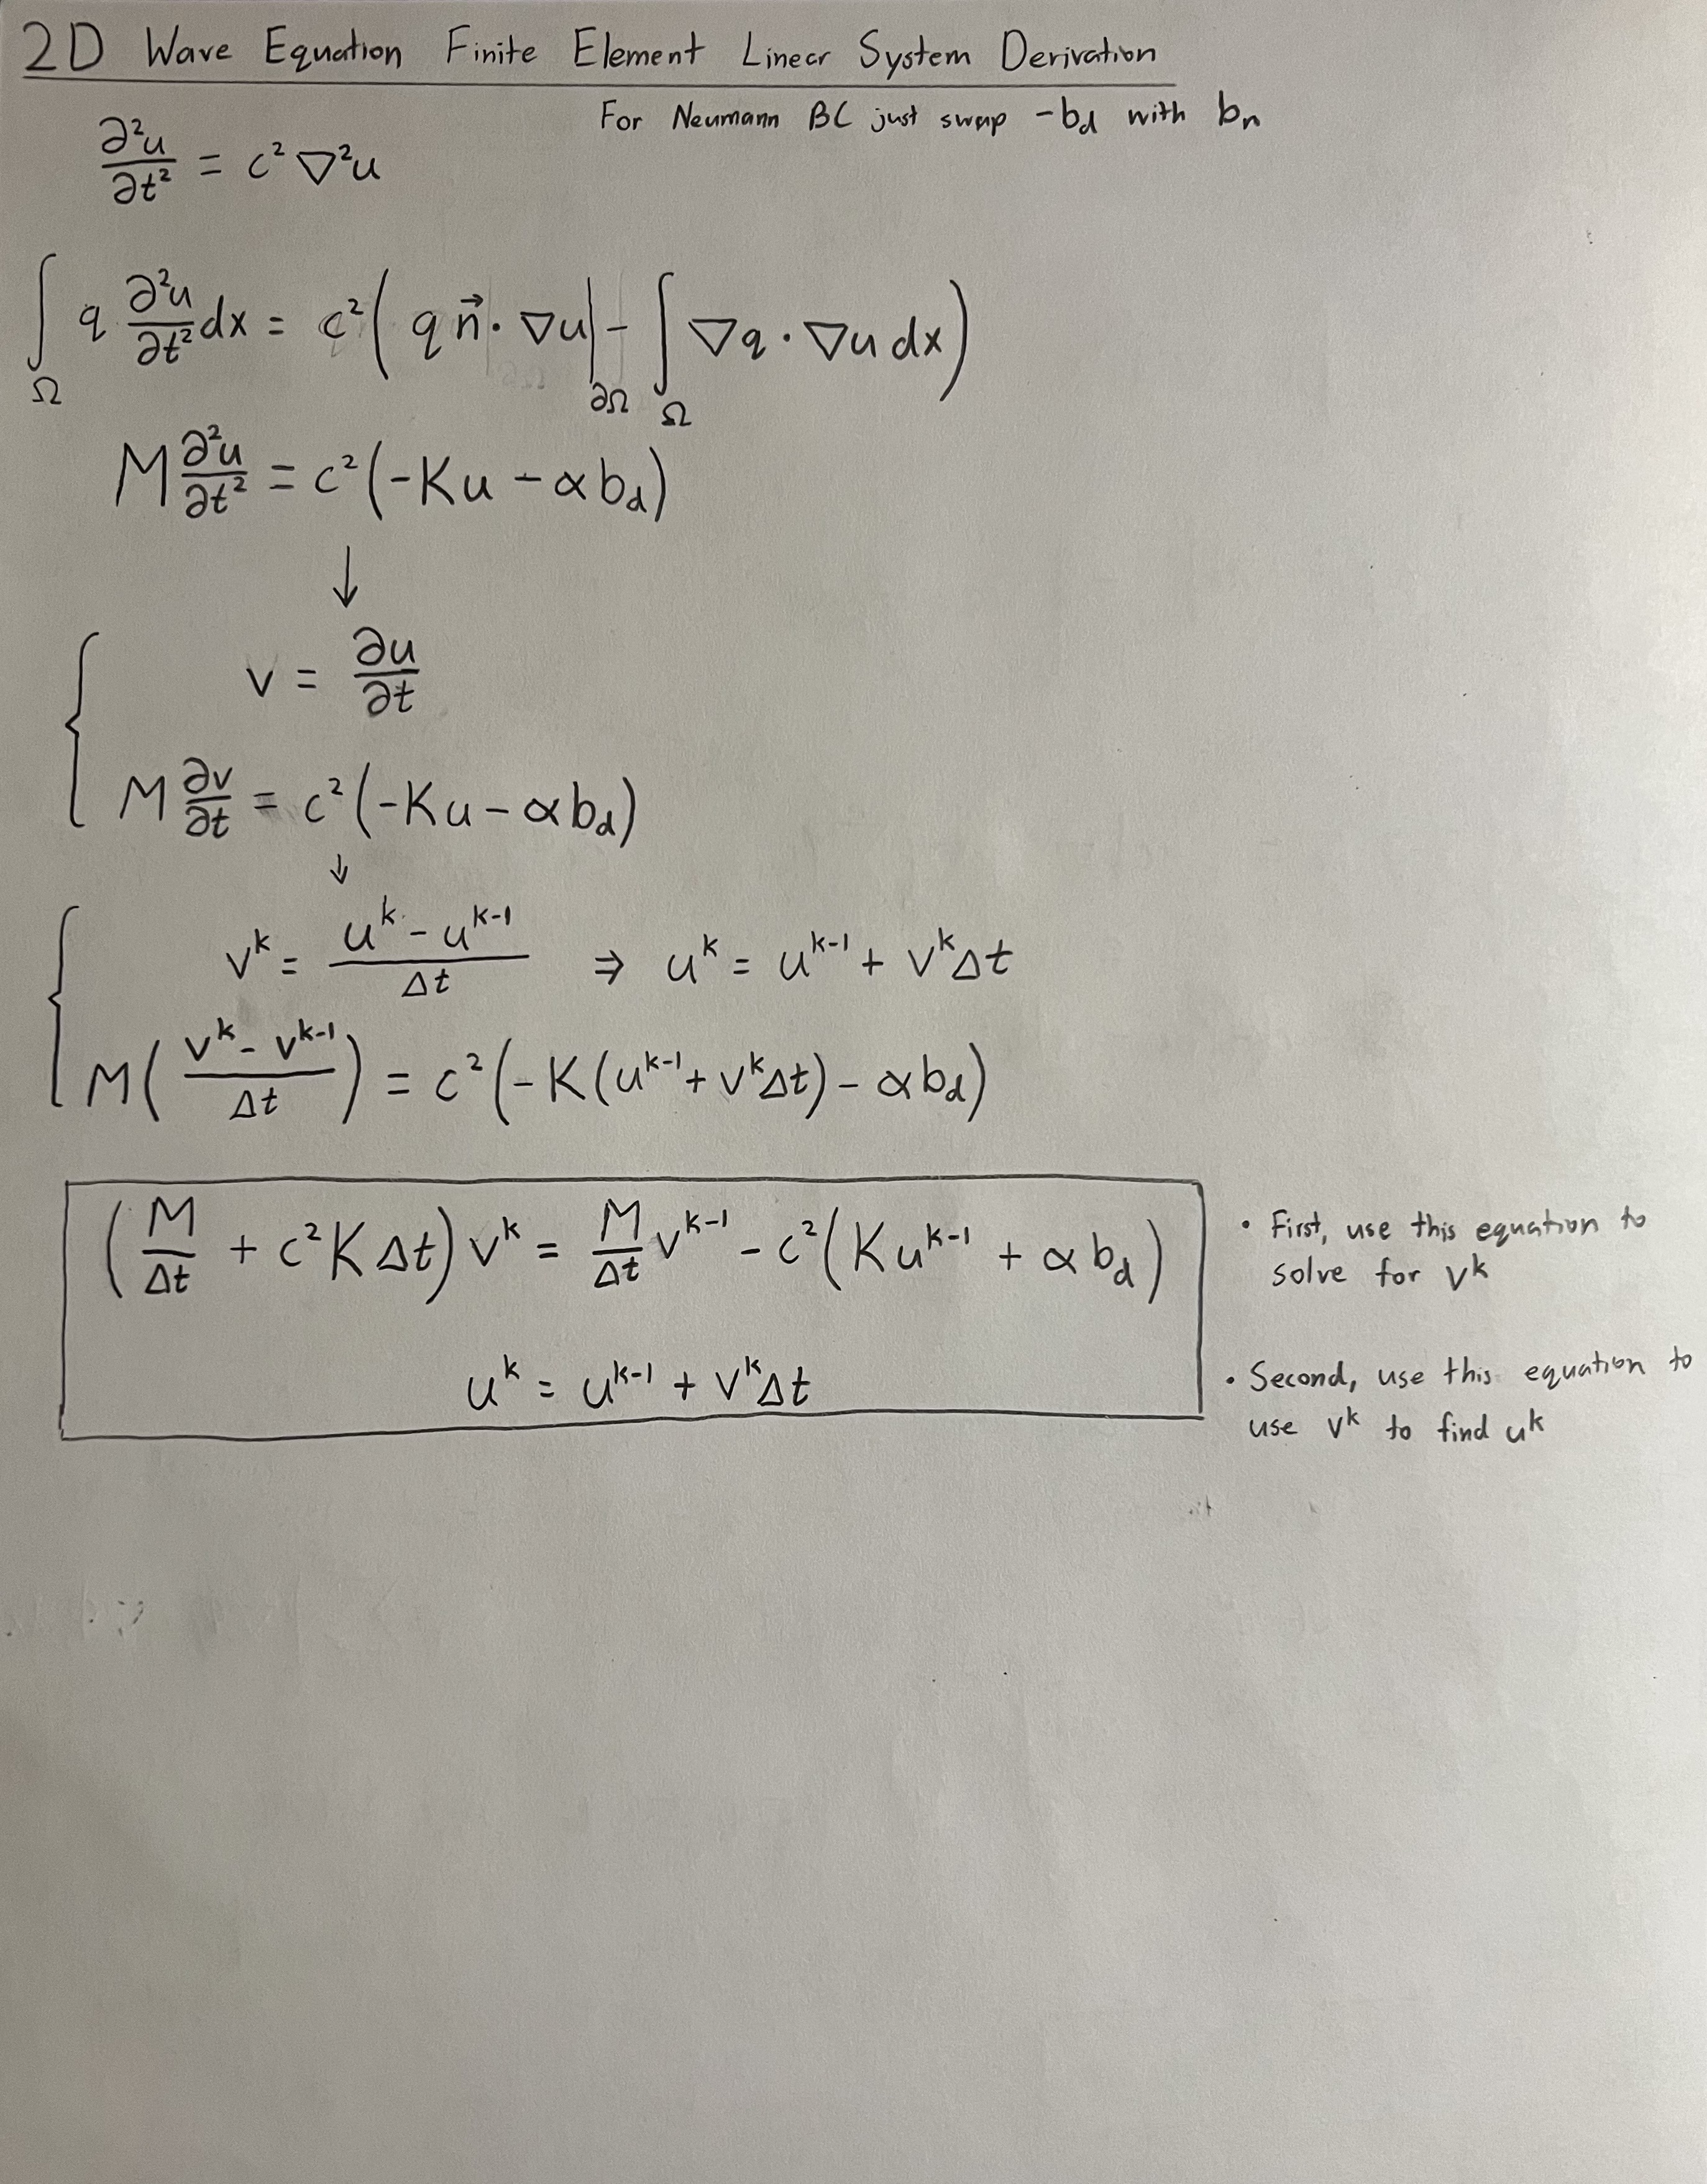 2D Wave Equation Finite Element Linear System Derivation
For Neumann BC just swap -b_d with b_n
∂²u/∂t² = c² ∇²u
∫_Ω q ∂²u/∂t² dx = c² ( q n⃗ · ∇u |_∂Ω - ∫_Ω ∇q · ∇u dx )
M ∂²u/∂t² = c² (-Ku - αb_d)
↓
{ v = ∂u/∂t
M ∂v/∂t = c² (-Ku - αb_d)
↓
{ v^k = (u^k - u^(k-1))/Δt ⇒ u^k = u^(k-1) + v^k Δt
M ( (v^k - v^(k-1))/Δt ) = c² (-K(u^(k-1) + v^k Δt) - αb_d)
(M/Δt + c² K Δt) v^k = M/Δt v^(k-1) - c² (Ku^(k-1) + αb_d)
• First, use this equation to
solve for v^k
u^k = u^(k-1) + v^k Δt
• Second, use this equation to
use v^k to find u^k